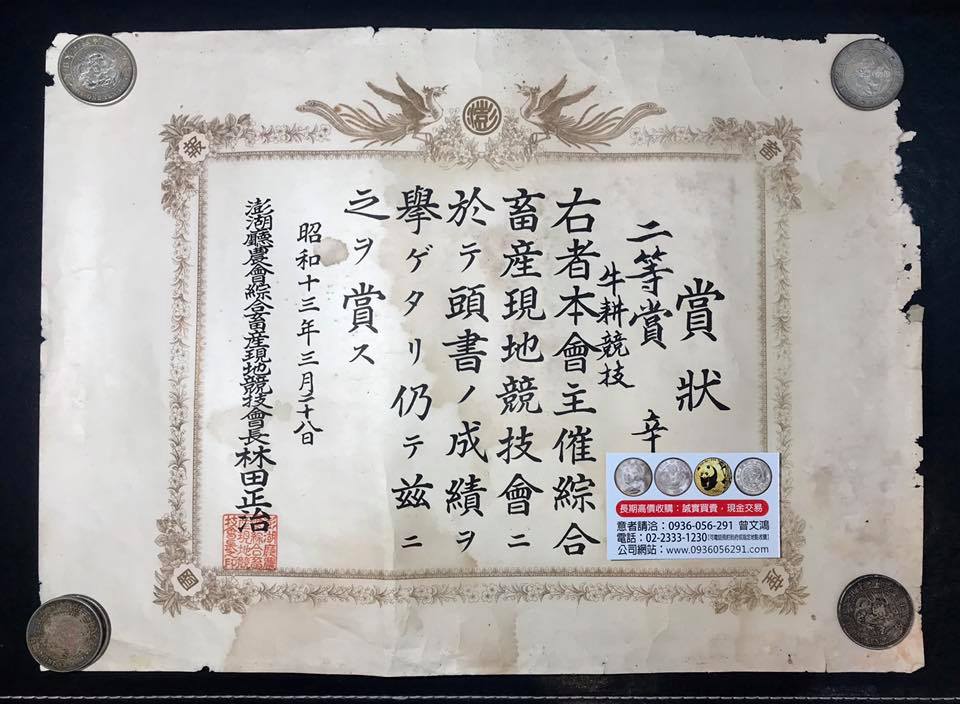 澎
畜
産
報
國
賞狀
二等賞
牛耕競技
辛
右者本會主催綜合
畜産現地競技會ニ
於テ頭書ノ成績ヲ
擧ゲタリ仍テ玆ニ
之ヲ賞ス
昭和十三年三月二十八日
澎湖廳農會綜合畜産現地競技會長 林田正治
長期高價收購：誠實買賣，現金交易
意者請洽：0936-056-291 曾文鴻
電話：02-2333-1230
公司網站：www.0936056291.com